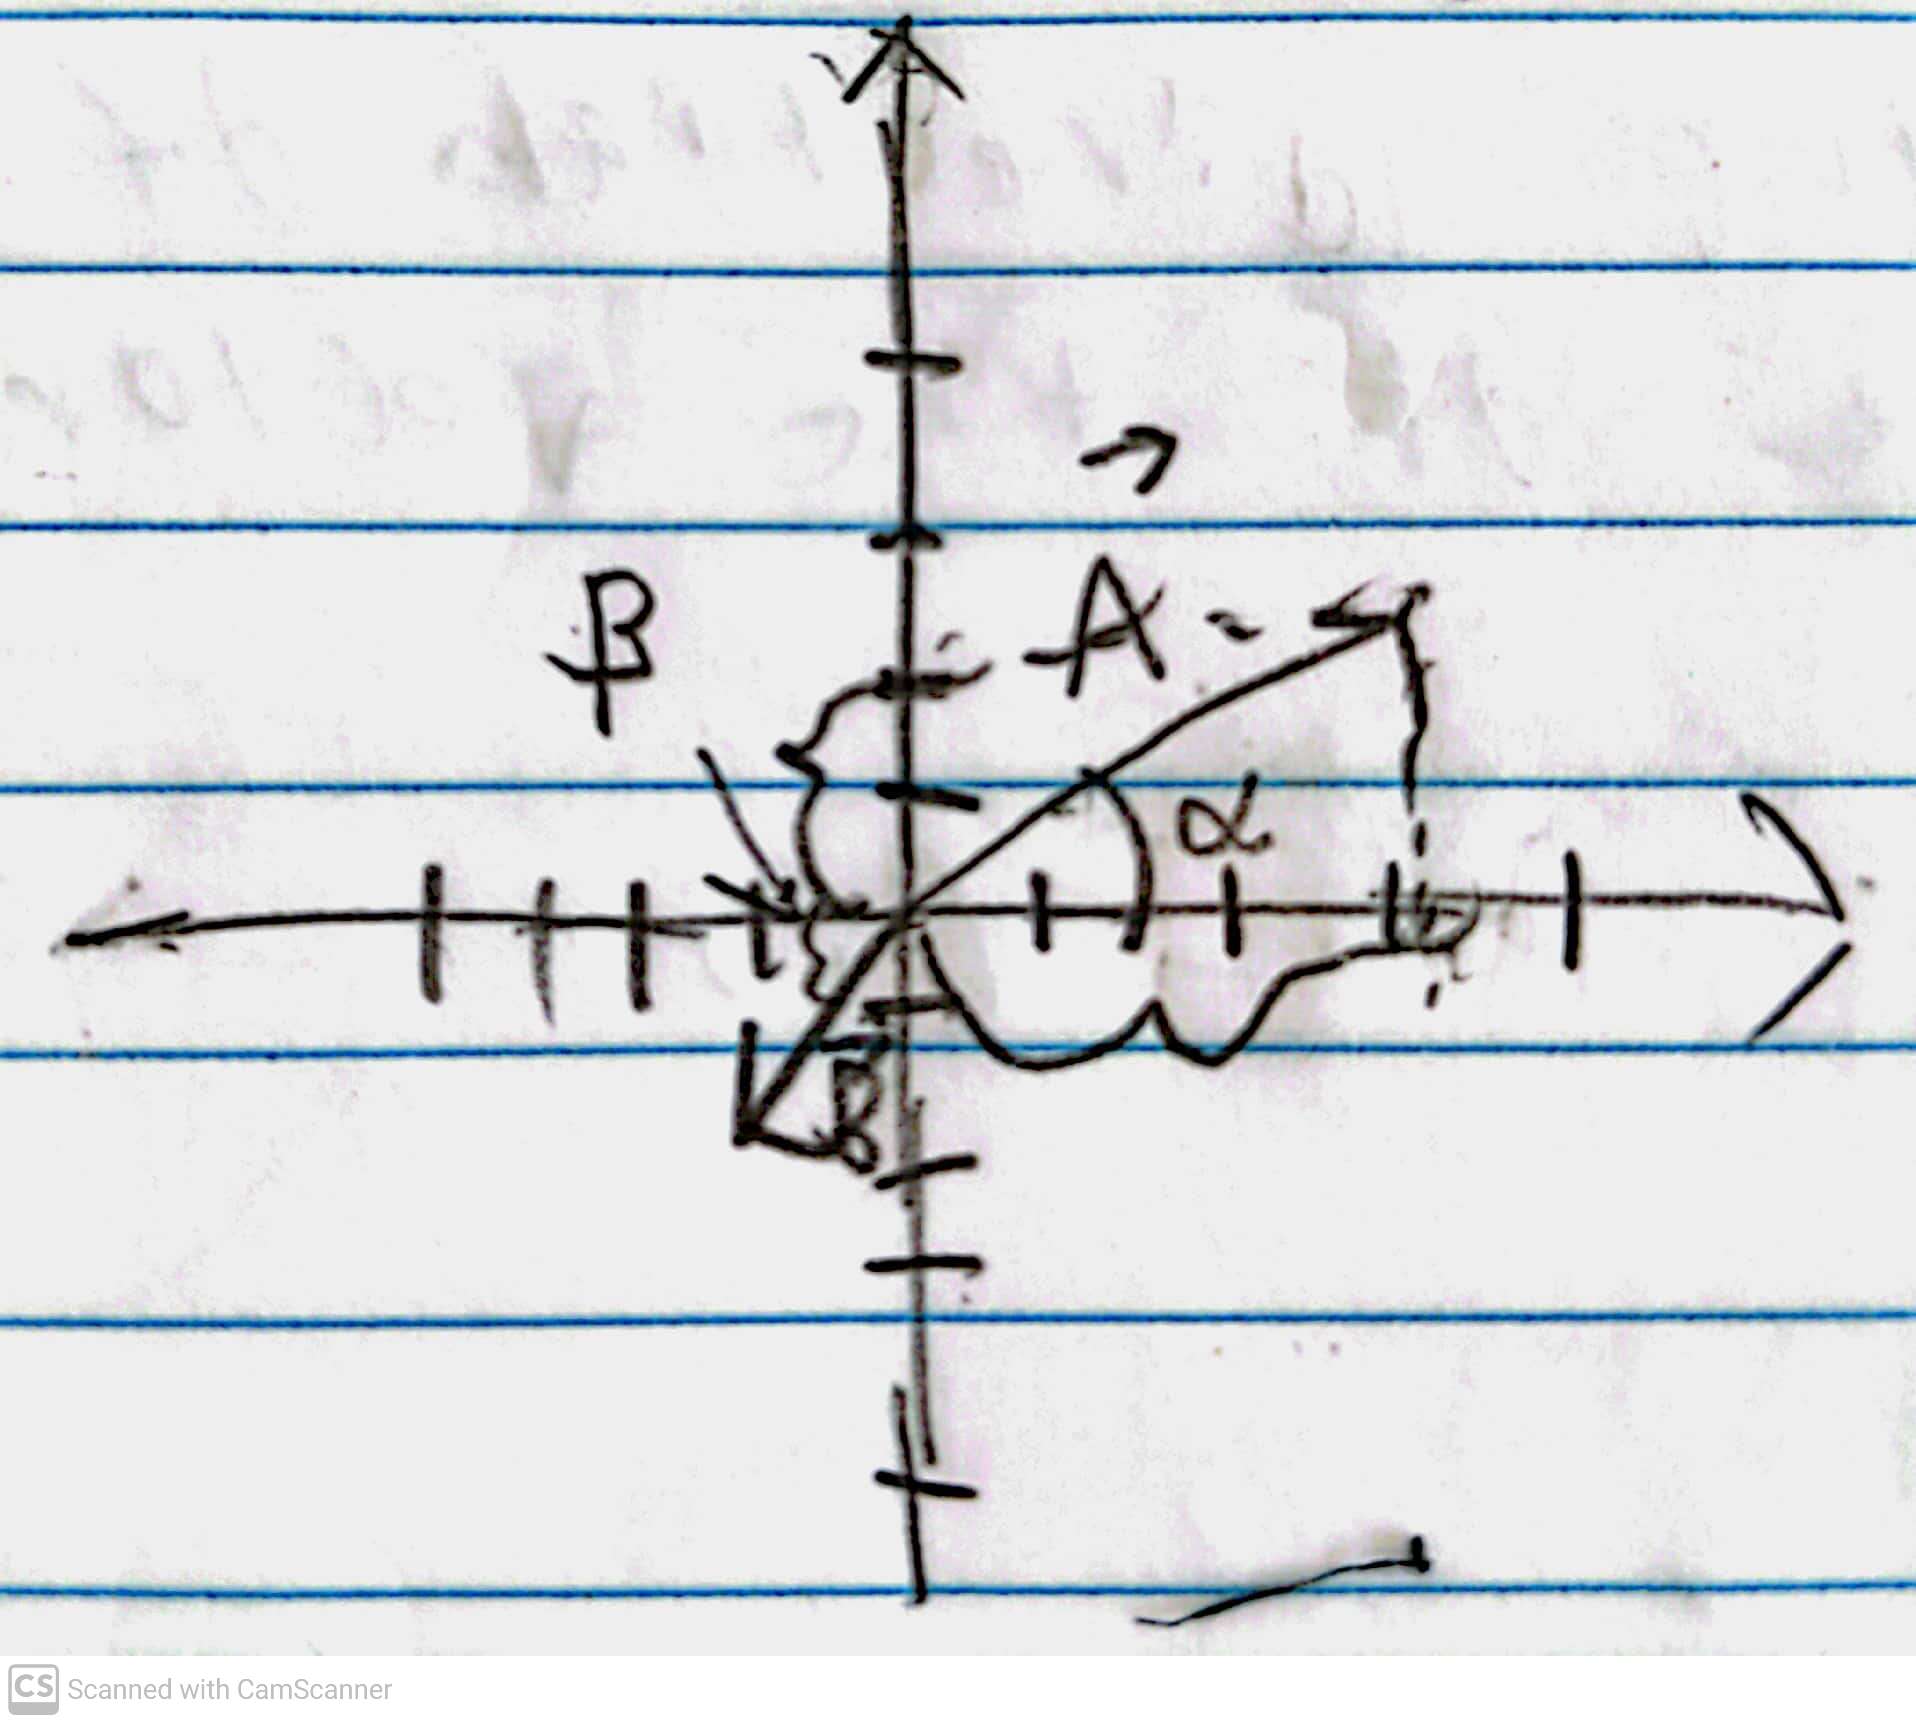 β
A⃗
α
B⃗
CS Scanned with CamScanner